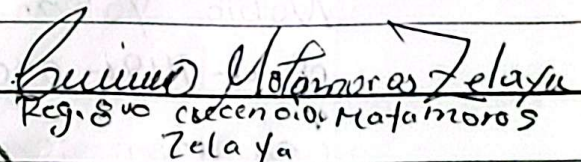 Matamoros Zelaya
Reg. 8vo crecencio. Matamoros
Zelaya